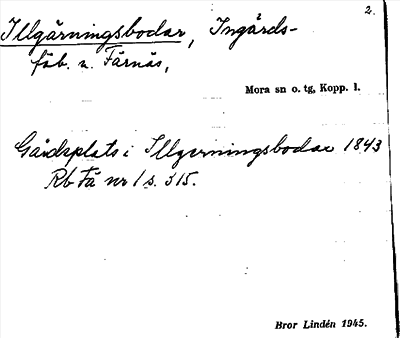 2.
Illgärningsbodar, Ingårds-
fäb. n. Färnäs,
Mora sn o. tg, Kopp. l.
Gårdsplats i Illgerningsbodar 1843
Rb Fä nr 1 s. 315.
Bror Lindén 1945.